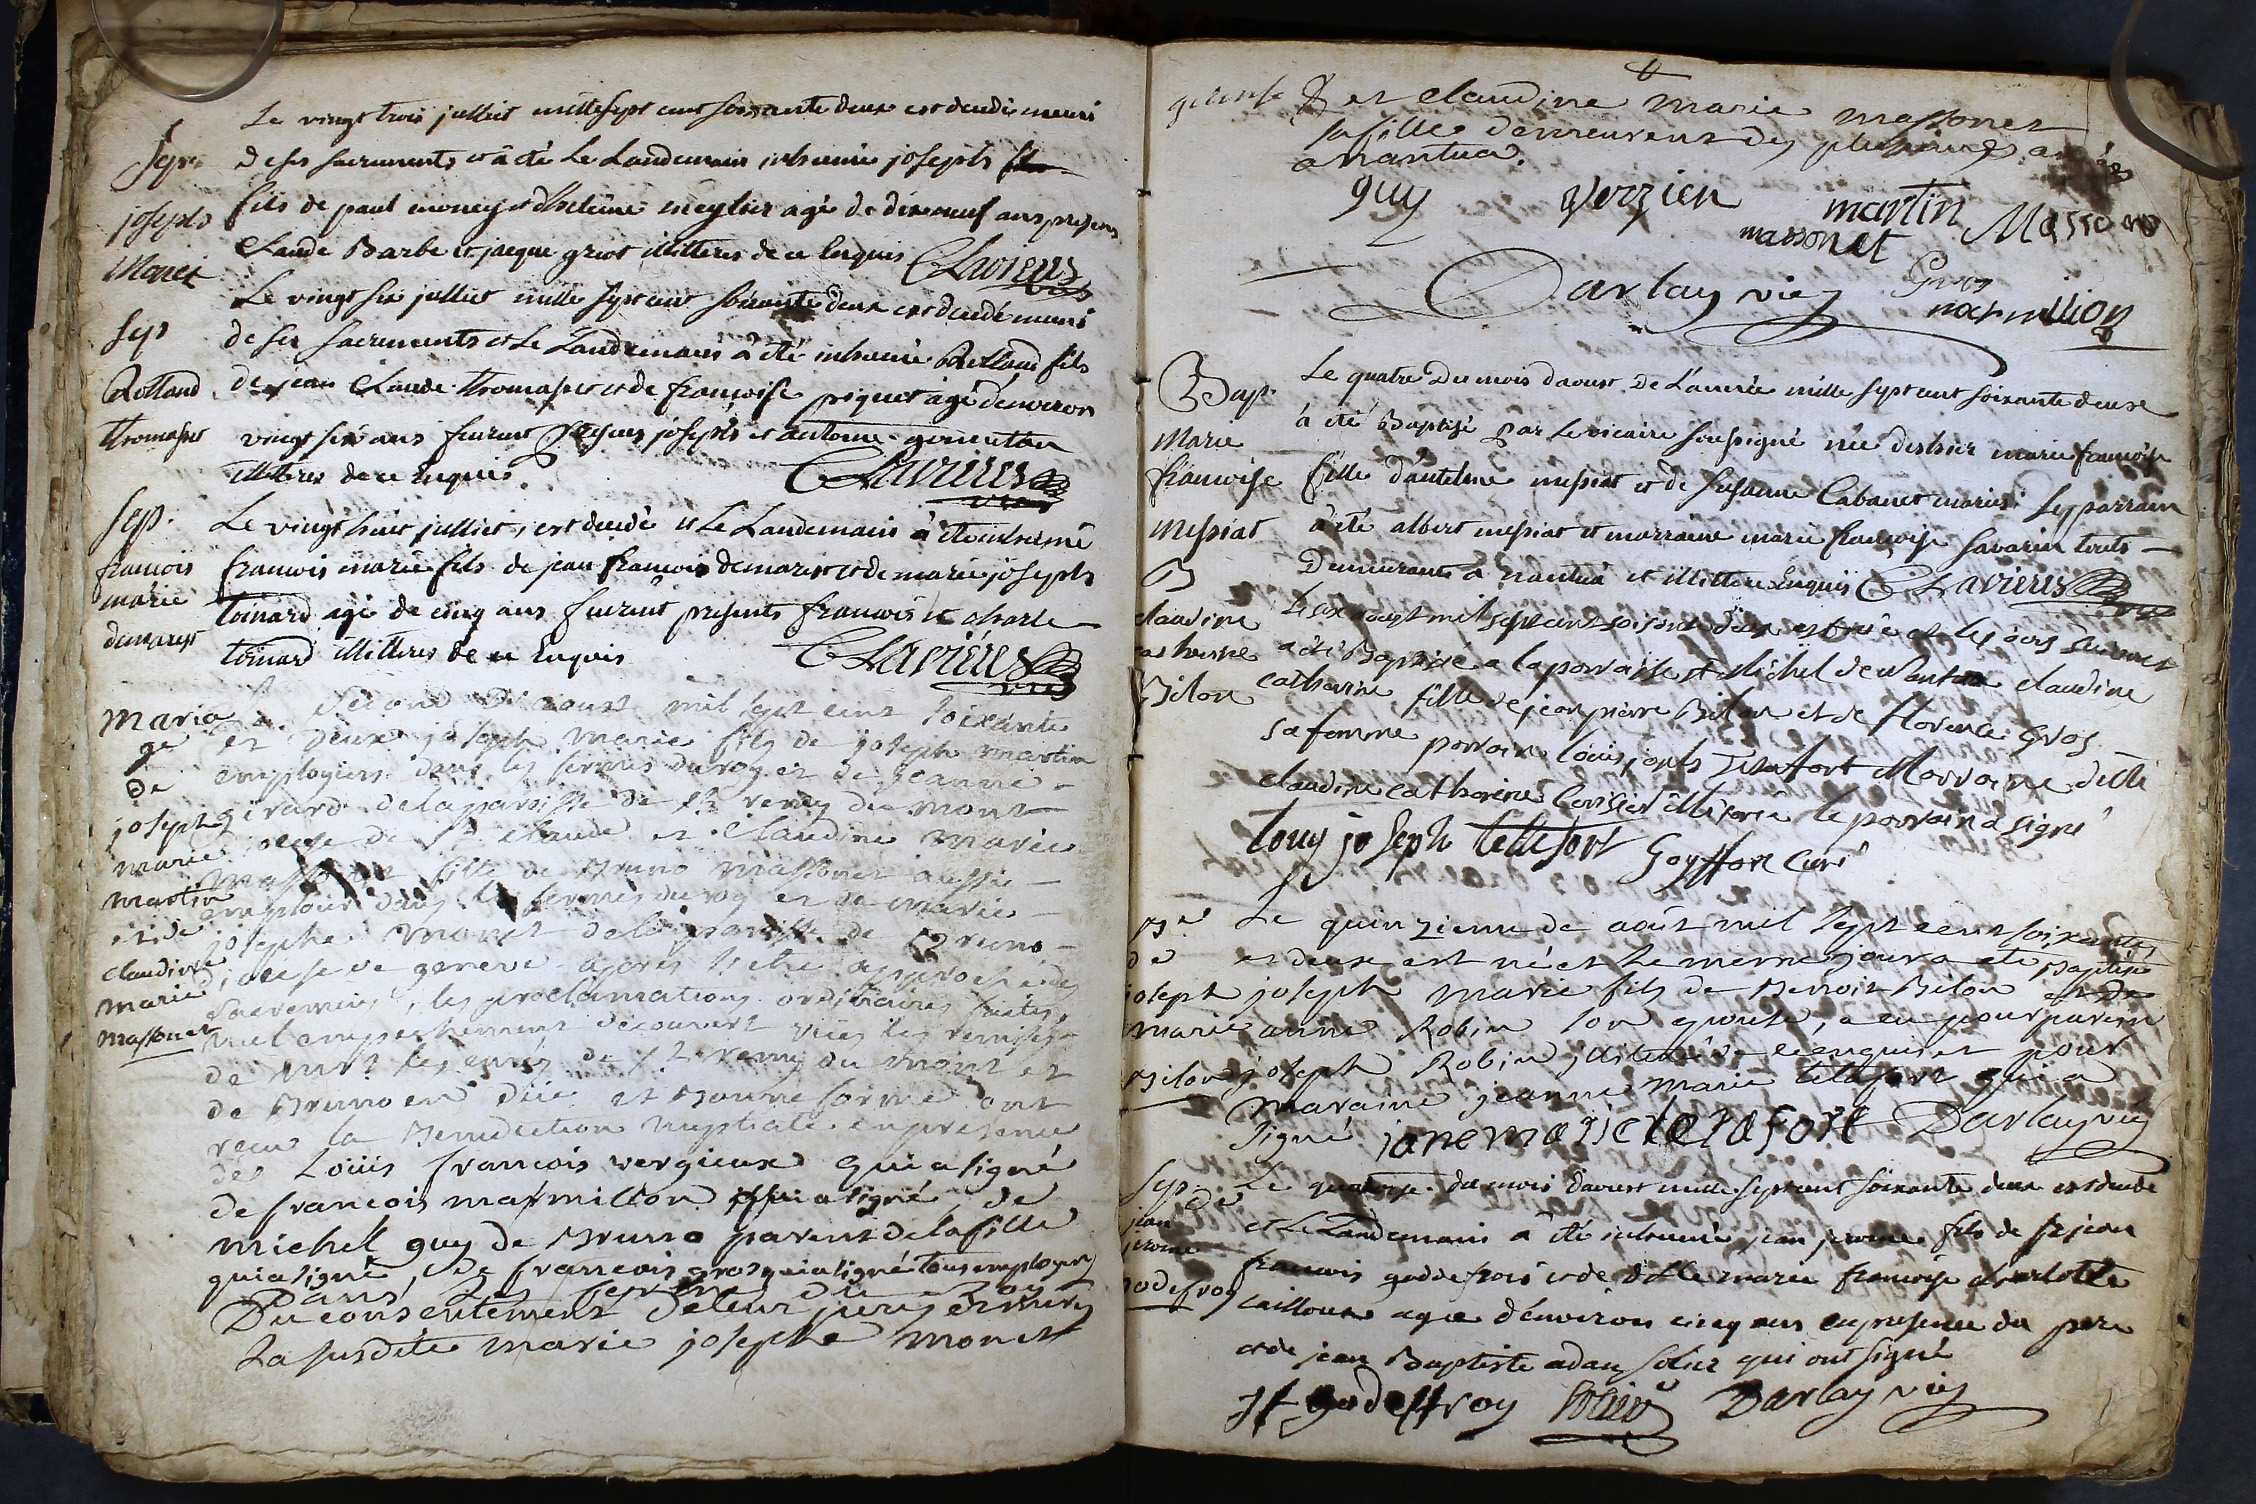 Le vingt trois julliet mille sept cent soixante deux est decedé muni
Sep. de ses sacrements et à été Le Landemain inhumé joseph
joseph fils de paul money et d'hélène meylier agé de dix neuf ans presens
Monet Claude Barbe et jacque griot illitterés de ce Enquis CLavieres
vic
Le vingt six julliet mille sept cent soixante deux est decedé muni
Sep de ses sacrements et Le Landemain à été inhumé Rolland fils
Rolland de jean Claude thomasset et de francoise piquet agé denviron
thomasset vingt six ans furent jacques joseph et antoine
illitterés de ce Enquis CLavieres
vic
Sep. Le vingt huit julliet, est decedé et Le Landemain à été inhumé
francois francois marie fils de jean francois demarest et de marie joseph
marie toinard agé de cinq ans furent presents francois et charle
demarest toinard illitteres de ce Enquis CLavieres
vic
Maria Le second d'aoust mil sept cent soixante
ge et deux joseph marie fils de joseph martin
de employiers dans les fermes du roy et de jeanne
joseph girard de la paroisse de st remy du mont
marie diocese de st claude et Claudine marie
martin massonet fille de Bruno massonet aussi
et de emploier dans les fermes du roy et de marie
claudine josephe monet de la paroisse de Breno
marie diocese de geneve apres s'etre approché des
massonet sacremens, les proclamations ordinaires faites,
nul empeschement decouvert vües les remises
de mrs les curés de st remy du mont et
de Brenno en düe et bonne forme ont
recu la Benediction nuptiale en presence
de Loüis francois vergieux qui a signé
de francois marmillon qui a signé, de
michel guy de Brenno parent de la fille
qui a signé, de francois gros qui a signé tous employers
dans les fermes du Roy
Du consentement de leur peres et meres
La susdite marie josephe monet
et claudine marie massonet
sa fille demeurent dez plusieurs années
a nantua.
guy verzien martin Masson
massonet
Darlay vic Gros
marmillion
Bap. Le quatre du mois daoust de L'année mille sept cent soixante deux
Marie à été Baptisé par Le vicaire soussigné née deshier marie francoise
francoise fille d'antelme messiat et de susanne Cabanet mariés. Le parrain
messiat à été albert messiat et marraine marie francoise savarin touts
Demeurants a nantua et illittere Enquis CLavieres
vic
B Le six aougt mil sept cent soisente deux est née et le jour suivant
claudine a été Baptisée a la parroisse st Michel de Nantua claudine
catherine catherine fille de jean pierre Bilon et de florence Gros
Bilon sa femme parrain louis joseph Tetafort Marraine delle
claudine catherine Cerisier illiterée le parrain a signé
louy joseph tettefort Goyffon curé
Bse Le quinzieme de août mil sept cent soixante
de et deux est né et le meme jour a ete Baptisé
joseph joseph marie fils de Benoit Bilon et de
marie anne Robin son epouse, a eu pour parein
Bilon joseph Robin illitteré de ce enquis et pour
maraine jeanne marie tetafort qui a
signé jane marie tetafort Darlay vic
Sep. Le quatorze du mois daoust mille sept cent soixante deux est decedé
de et Le Landemain à été inhumé jean jerome fils de sr jean
jean francois goddefroi et de delle marie francoise charlotte
jerome cailloux agé d'environ cinq ans en presence du pere
godefroy et de jean Baptiste adam solier qui ont signé
jf godeffroy solier Darlay vic